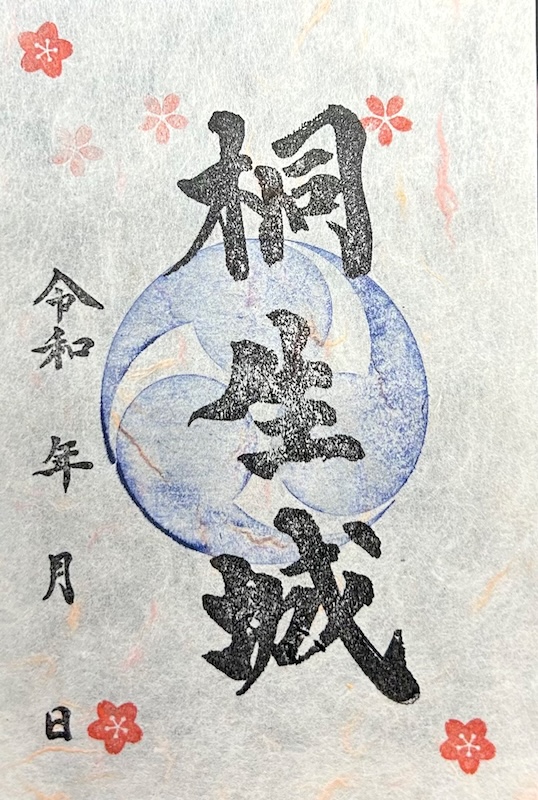 桐生城
令和 年 月 日